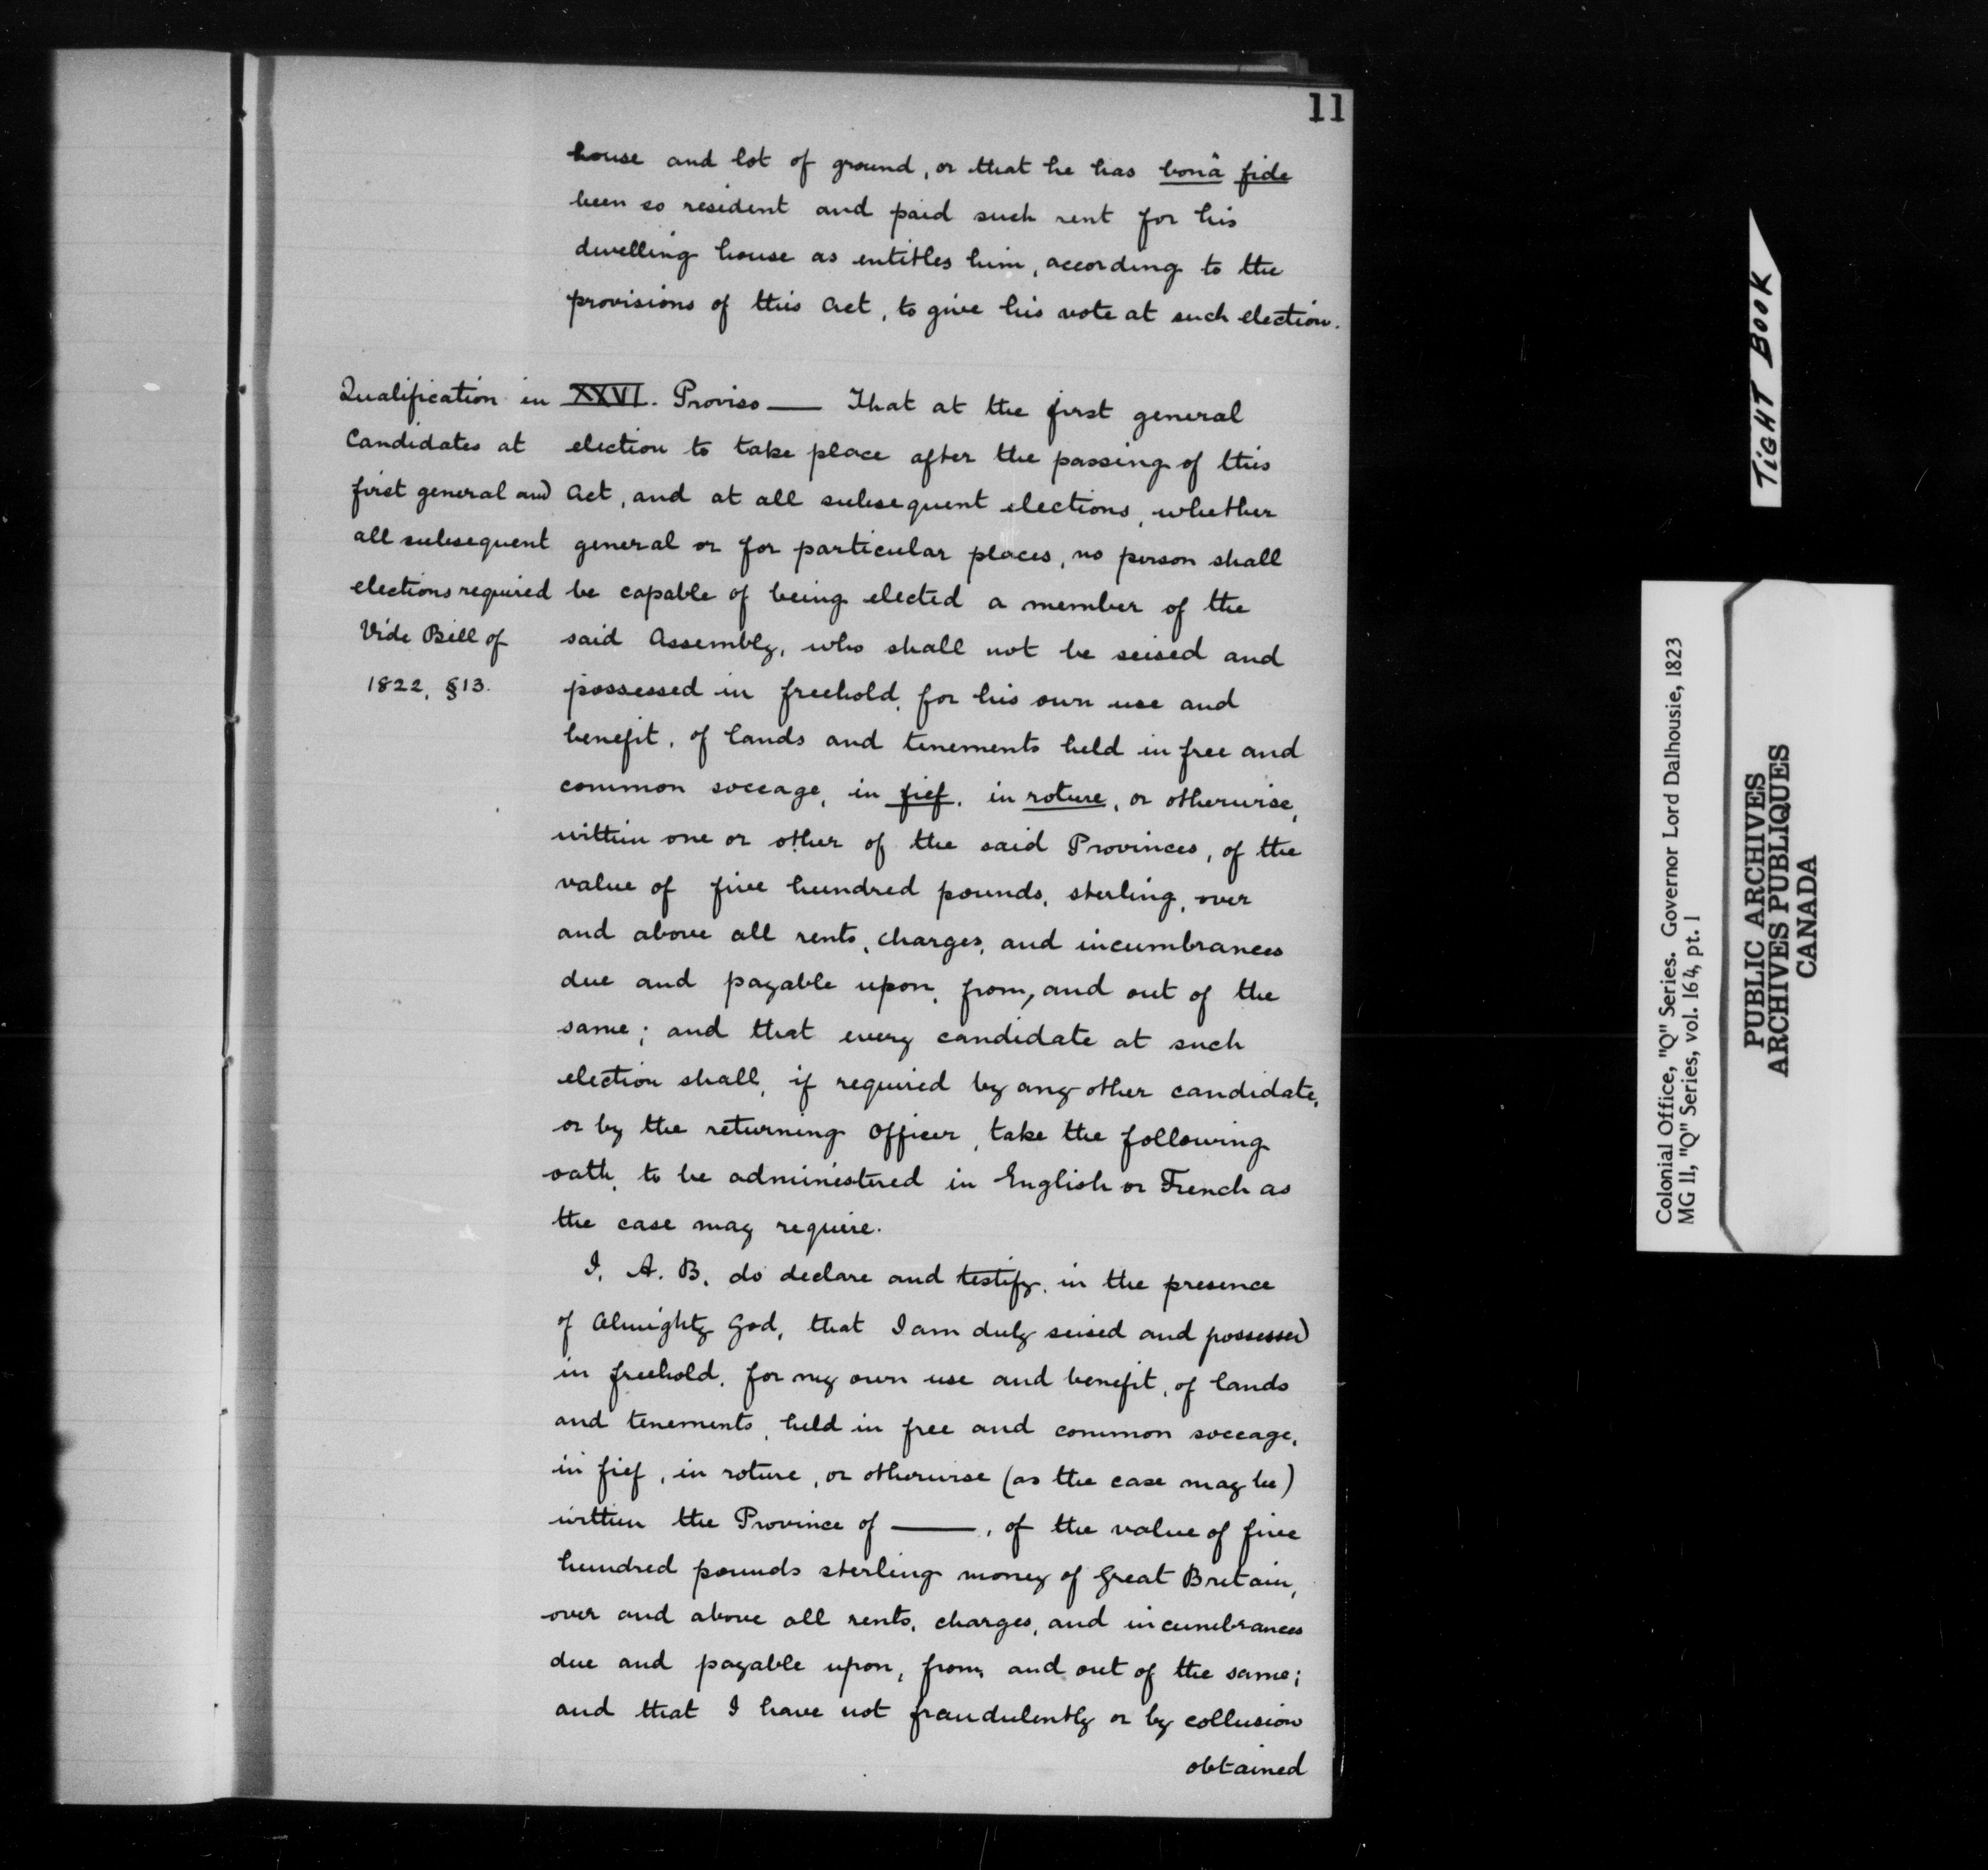 11
house and lot of ground, or that he has bonâ fide
been so resident and paid such rent for his
dwelling house as entitles him, according to the
provisions of this Act, to give his vote at such election.
Qualification in
Candidates at
first general and
all subsequent
elections required
Vide Bill of
1822, §13.
XXVI. Proviso — That at the first general
election to take place after the passing of this
Act, and at all subsequent elections, whether
general or for particular places, no person shall
be capable of being elected a member of the
said Assembly, who shall not be seised and
possessed in freehold, for his own use and
benefit, of lands and tenements held in free and
common soccage, in fief, in roture, or otherwise,
within one or other of the said Provinces, of the
value of five hundred pounds, sterling, over
and above all rents, charges, and incumbrances
due and payable upon, from, and out of the
same; and that every candidate at such
election shall, if required by any other candidate,
or by the returning Officer, take the following
oath, to be administered in English or French as
the case may require.
I, A. B, do declare and testify, in the presence
of Almighty God, that I am duly seised and possessed
in freehold, for my own use and benefit, of lands
and tenements, held in free and common soccage,
in fief, in roture, or otherwise (as the case may be)
within the Province of ———, of the value of five
hundred pounds sterling money of Great Britain,
over and above all rents, charges, and incumbrances
due and payable upon, from, and out of the same;
and that I have not fraudulently or by collusion
obtained
TIGHT BOOK
Colonial Office, "Q" Series. Governor Lord Dalhousie, 1823
MG 11, "Q" Series, vol. 164, pt. 1
PUBLIC ARCHIVES
ARCHIVES PUBLIQUES
CANADA